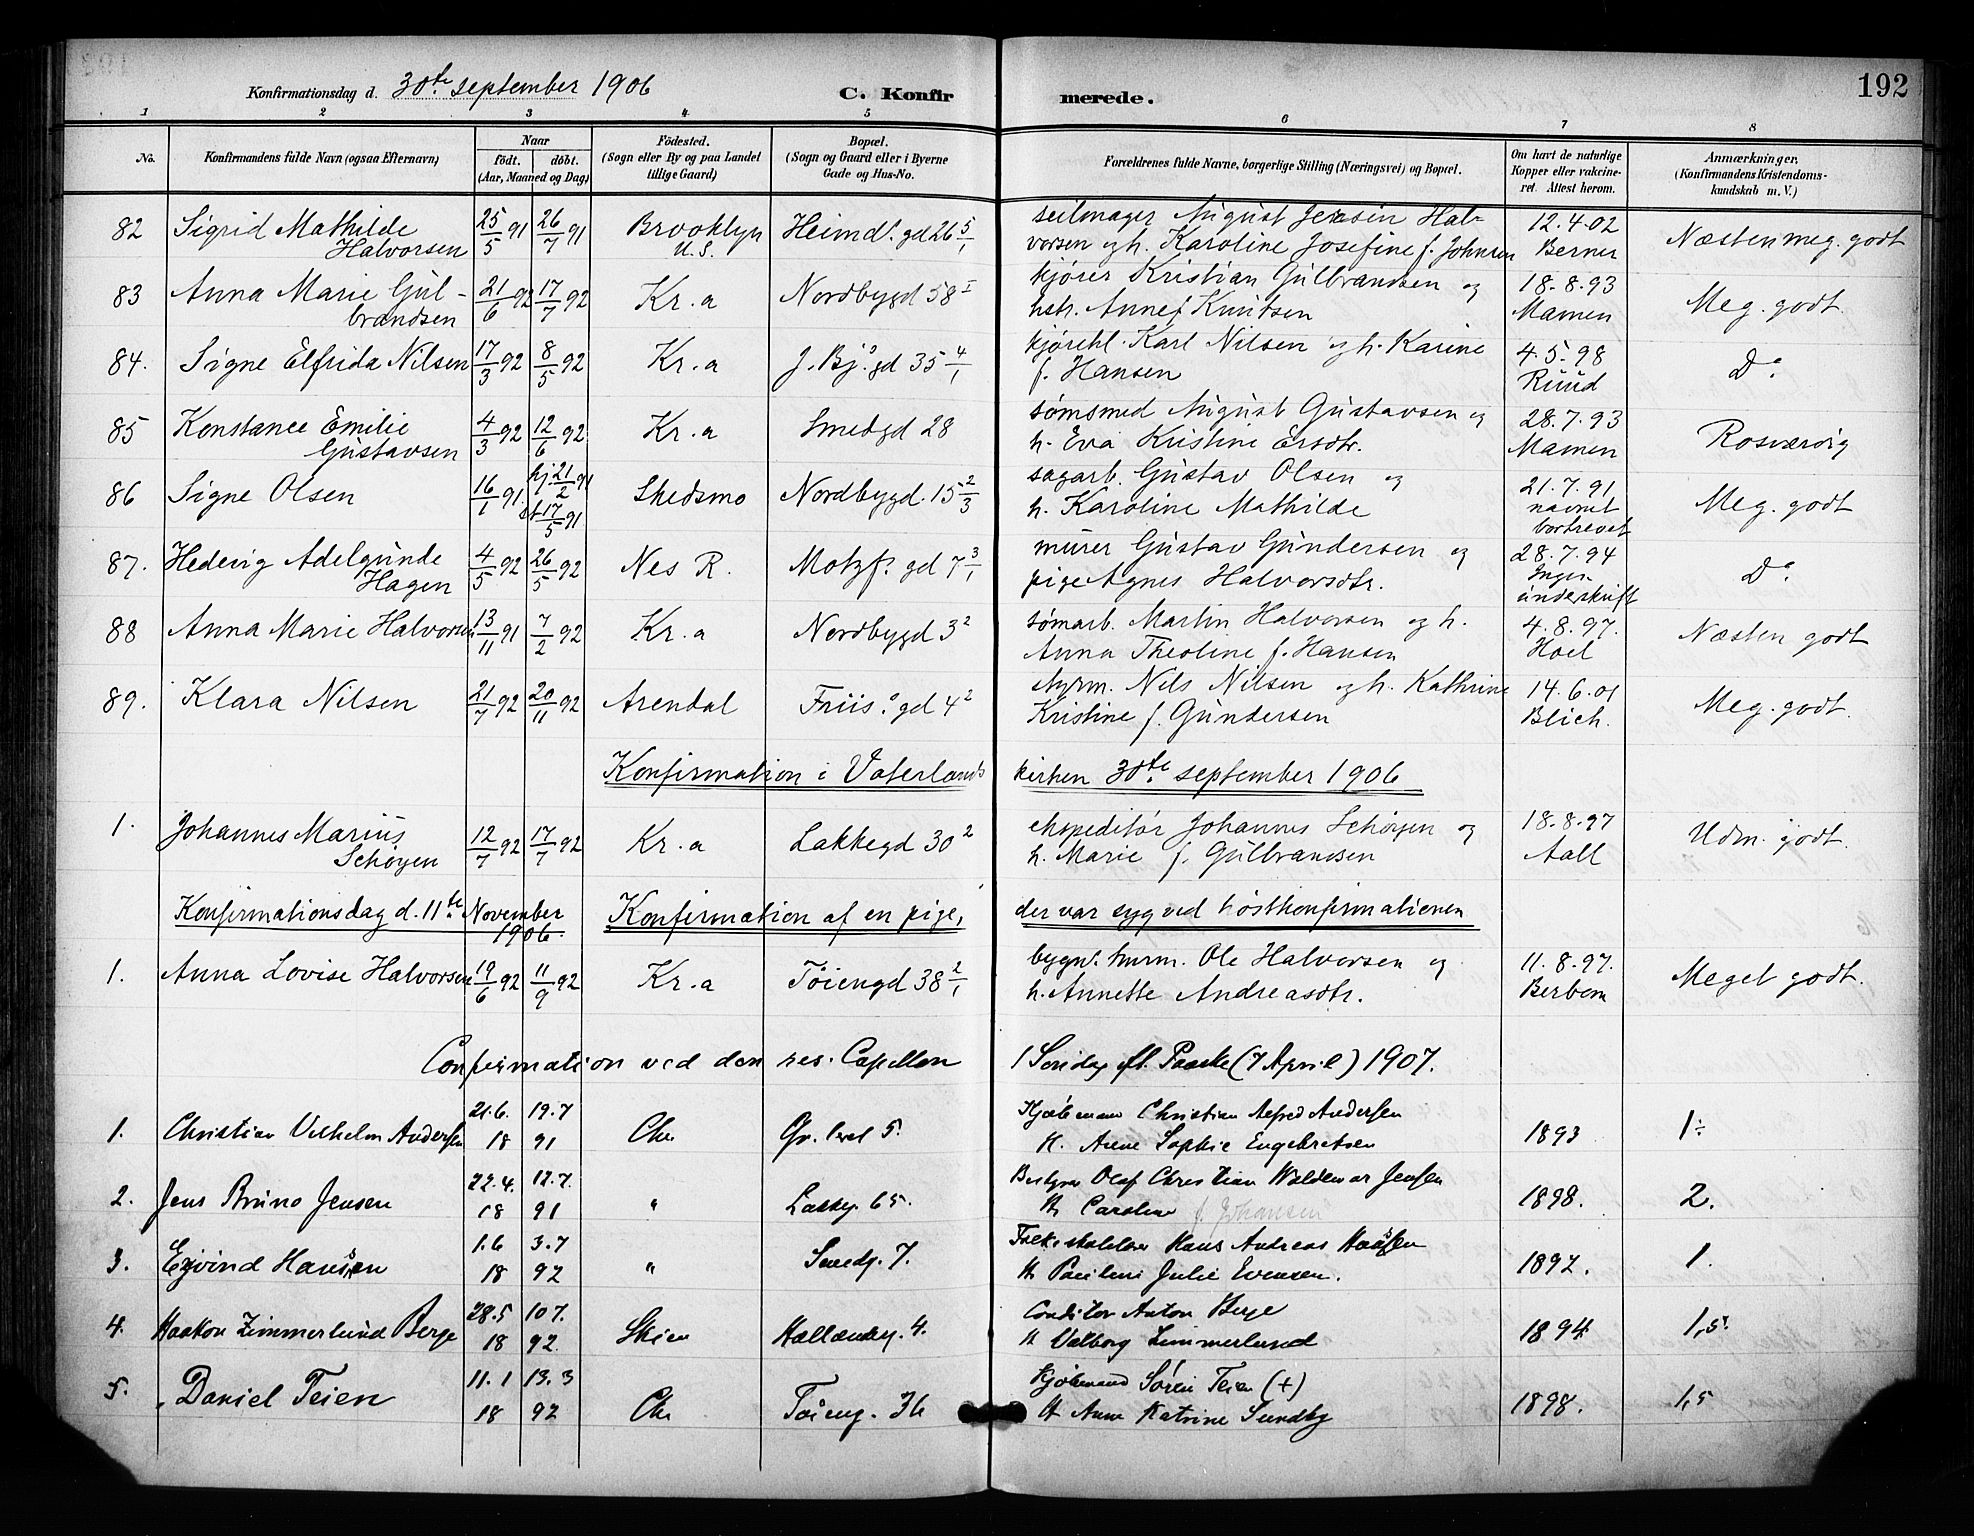 Konfirmationsdag d. 30te september 1906
C. Konfirmerede.
192
1 2 3 4 5 6 7 8
No.
Konfirmandens fulde Navn (ogsaa Efternavn)
Naar
födt. döbt.
(Aar, Maaned og Dag)
Födested.
(Sogn eller By og paa Landet tillige Gaard)
Bopæl.
(Sogn og Gaard eller i Byerne Gade og Hus-No.
Forældrenes fulde Navne, borgerlige Stilling (Næringsvei) og Bopæl.
Om havt de naturlige Kopper eller vakcineret. Attest herom.
Anmærkninger.
(Konfirmandens Kristendomskundskab m. V.)
82 Sigrid Mathilde Halvorsen 25/5 91 26/7 91 Brooklyn U.S. Heimd. gd 26 5/1 seilmager August Jensin Halvorsen og h. Karoline Josefine f. Johnsen 12.4.02 Berner Næsten meg. godt
83 Anna Marie Gulbrandsen 21/6 92 17/7 92 Kr.a Nordbygd 58 I kjører Kristian Gulbrandsen og hstr. Anne f Knutsen 18.8.93 Mamen Meg. godt
84. Signe Elfrida Nilsen 17/3 92 8/5 92 Kr.a J. Bj. gd 35 4/1 kjørekl. Karl Nilsen og h. Karine f. Hansen 4.5.98 Ruud Do.
85 Konstance Emilie Gustavsen 4/3 92 12/6 92 Kr.a Smedgd 28 sømsmed August Gustavsen og h. Eva Kristine Ersdtr. 28.7.93 Mamen Rosværdig
86 Signe Olsen 16/1 91 hj. 21/2 91 st 17/5 91 Skedsmo Nordbygd. 15 2/3 sagarb. Gustav Olsen og h. Karoline Mathilde 21.7.91 navnet bortrevet Meg. godt
87. Hedevig Adelgunde Hagen 4/5 92 26/5 92 Nes R. Motzf. gd 7 3/1 murer Gustav Gundersen og pige Agnes Halvorsdtr. 28.7.94 Ingen underskrift Do.
88 Anna Marie Halvorsen 13/11 91 7/2 92 Kr.a Nordbygd 3 2 sømarb. Martin Halvorsen og h. Anna Theoline f. Hansen 4.8.97. Hoel Næsten godt
89. Klara Nilsen 21/7 92 20/11 92 Arendal Friis. gd 4 2 styrm. Nils Nilsen og h. Kathrine Kristine f. Gundersen 14.6.01 Blich. Meg. godt.
Konfirmation i Vaterlands kirken 30te september 1906
1. Johannes Marius Schøyen 12/7 92 17/7 92 Kr.a Lakkegd 30 2 ekspeditør Johannes Schøyen og h. Marie f. Gulbrandsen 18.8.97 Aall Udm. godt.
Konfirmationsdag d. 11te November 1906. Konfirmation af en pige, der var syg ved høstkonfirmationen
1. Anna Lovise Halvorsen 19/6 92 11/9 92 Kr.a Töiengd 38 2/1 bygn. Ole Halvorsen og h. Annette Andreasdtr. 11.8.97. Meget godt.
Confirmation ved den res. Capellan 1 Søndag eft. Paaske (7 April) 1907.
1. Christian Vilhelm Andersen 21.6. 18 19.7 91 Chr Gr. leret 5. Kjøbmann Christian Alfred Andersen H. Anne Sophie Engebretsen 1893 1÷
2. Jens Bruno Jensen 22.4. 18 12.7. 91 " Lakkeg. 65. Bestyrer Olaf Christian Waldemar Jensen H. Caroline f. Johansen 1898. 2.
3. Ejvind Hansen 1.6 18 3.7 92 " Smedg. 7. Hans Andreas Hansen H. Pauline Julie Evensen. 1892. 1.
4. Haakon Zimmerlund Berge 28.5 18 10.7. 92. Skien Hollenderg. 4. Conditor Anton Berge H Valborg Zimmerlund 1894 1,5.
5. Daniel Teien 11.1 18 13.3 92 Chr Töieng. 36 Kjøbmand Sören Teien (+) H Anne Katrine Sundby 1898. 1,5